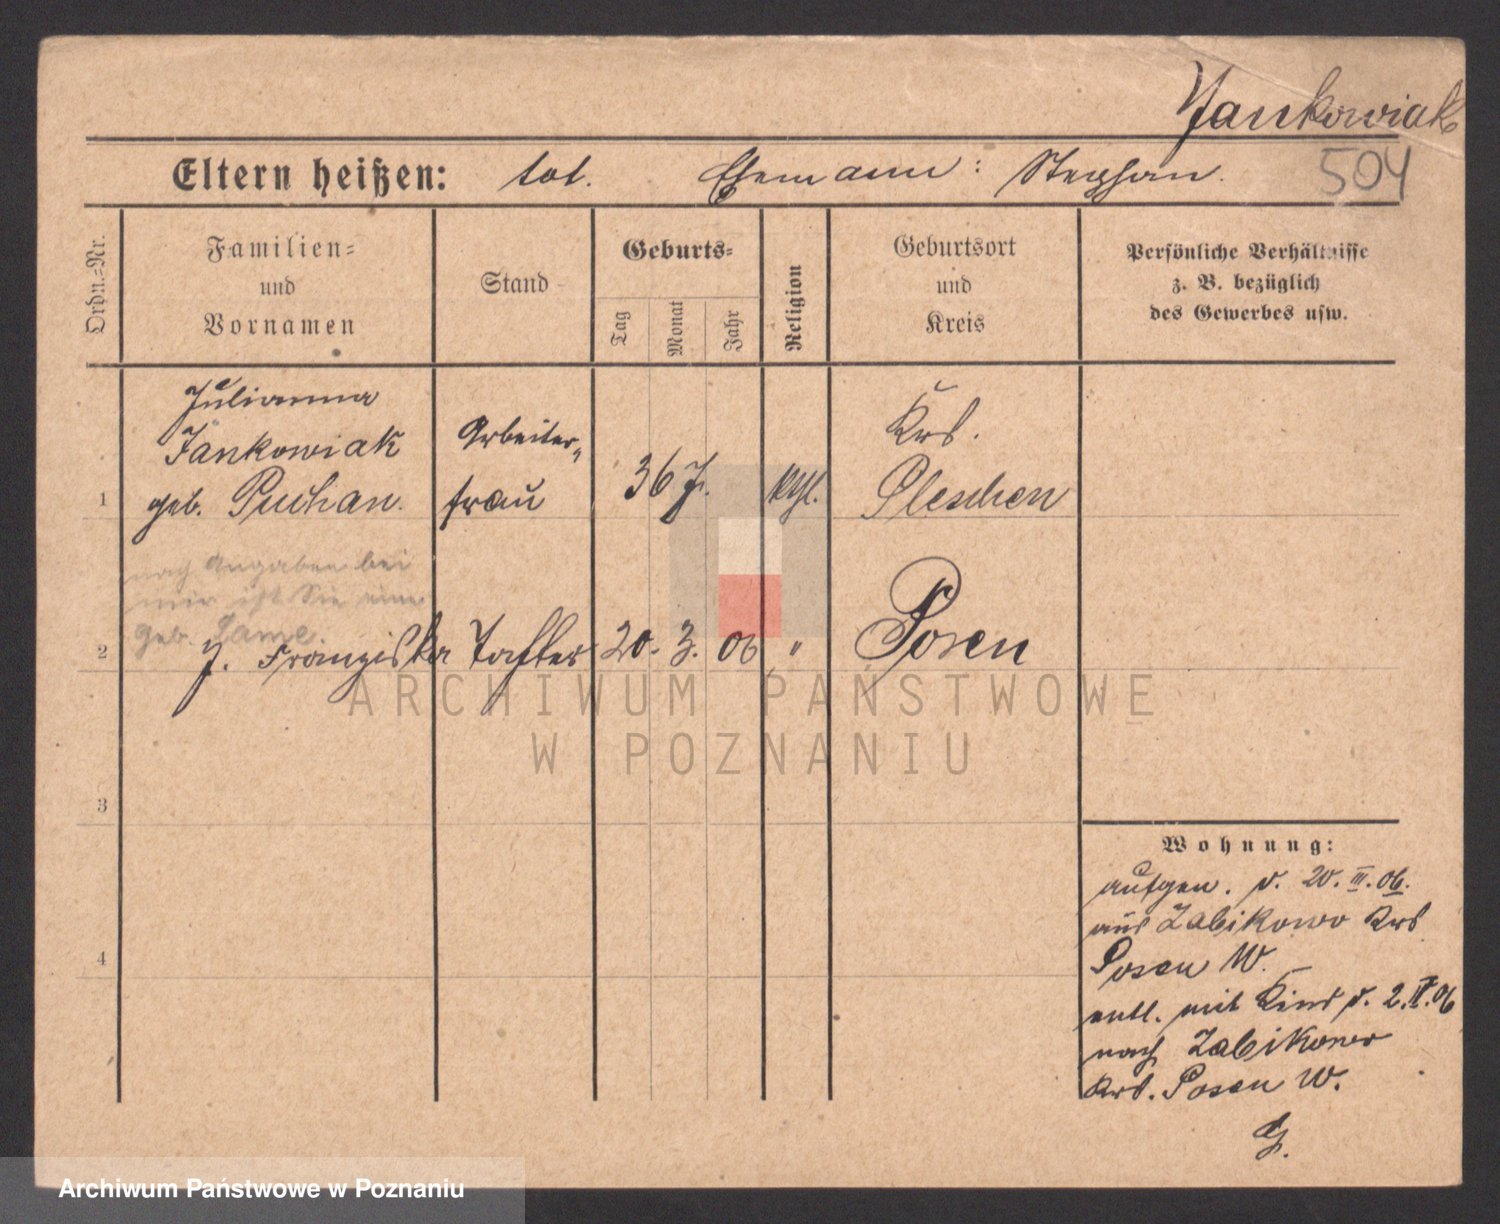 Jankowiak
504
Eltern heißen: tot. Ehemann: Stephan.
Ordn.=Nr.
Familien=
und
Vornamen
Stand
Geburts=
Tag
Monat
Jahr
Religion
Geburtsort
und
Kreis
Persönliche Verhältnisse
z. B. bezüglich
des Gewerbes usw.
1
Julianna
Jankowiak
geb. Puchan.
Arbeiter=
frau
36 J.
kthl.
Krs.
Pleschen
nach Angaben bei
mir ist Sie eine
geb.
2
J. Franziska
Tochter
20. 3. 06
"
Posen
3
4
Wohnung:
aufgen. v. 20. III. 06.
aus Zabikowo Krs
Posen W.
entl. mit Kind d. 2. IV. 06
nach Zabikowo
Krs. Posen W.
ARCHIWUM PAŃSTWOWE
W POZNANIU
Archiwum Państwowe w Poznaniu